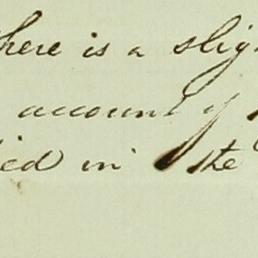 here is a slig
account of
ied in the